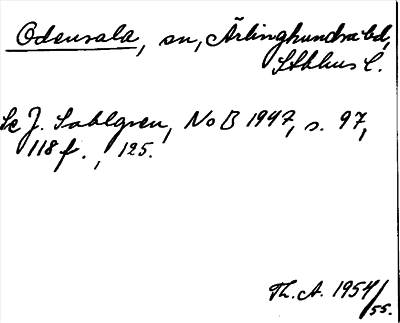 Odensala, sn, Ärlinghundra hd,
Sthlms l.
Se J. Sahlgren, NoB 1947, s. 97,
118 f., 125.
Th. A. 1954/55.